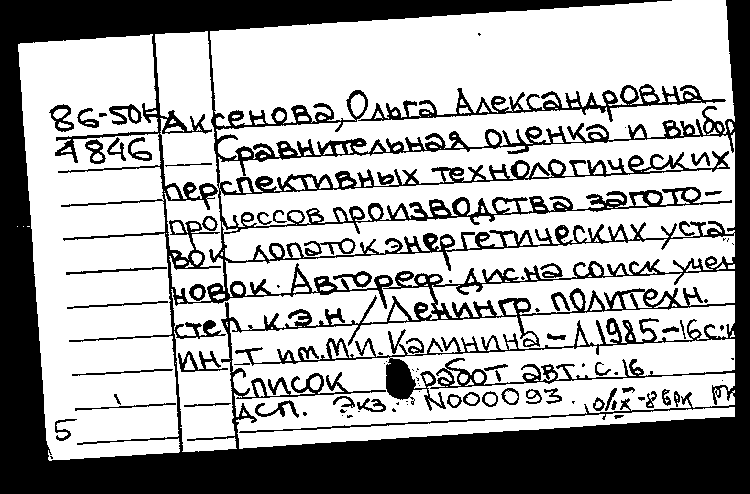 86-50К Аксенова, Ольга Александровна
4846 Сравнительная оценка и выбор
перспективных технологических
процессов производства загото-
вок лопаток энергетических уста-
новок. Автореф. дис. на соиск учен
степ. к.э.н. / Ленингр. политехн.
ин-т им. М.И. Калинина. – Л, 1985. – 16 с.: и
Список работ авт.: с. 16.
дсп. Экз. N000093.
5